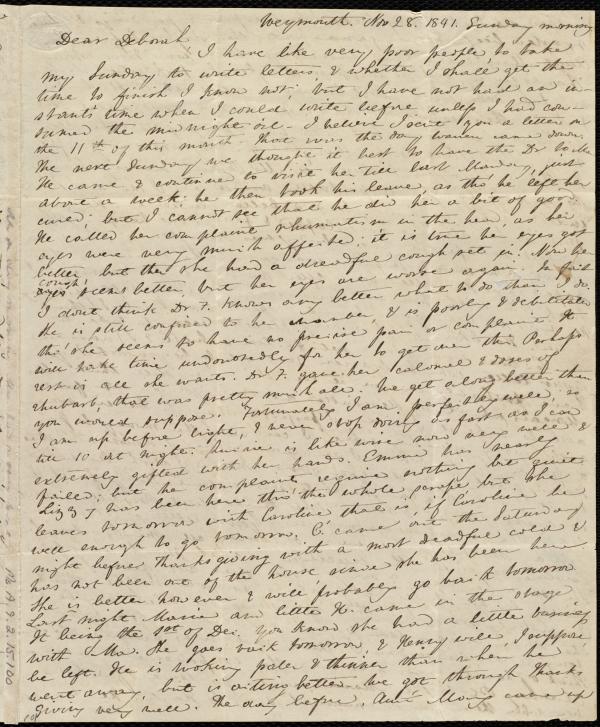 Weymouth. Nov 28. 1841. Sunday morning
Dear Deborah,
I have like very poor people to take
my Sunday to write letters, & whether I shall get the
time to finish I know not; but I have not had an in-
stant's time when I could write before unless I had con-
sumed the midnight oil. I believe I sent you a letter on
the 11th of this month. That was the day came down.
The next Sunday we thought it best to have the Dr to Ma
He came & continued to visit her till last Monday, just
about a week; he then took his leave, as tho' he left her
cured; but I cannot see that he did her a bit of good.
He called her complaint rhumatism in the head, as her
eyes were very much affected; it is true her eyes got
better but then she had a dreadful cough set in. Now her
cough
seems better, but her eyes are worse again. In fact
I don't think Dr F. knows any better what to do than I do.
She is still confined to her chamber, & is poorly & debilitated
tho' she seems to have no precise pain or complaint. It
will take time undoubtedly for her to get over this Perhaps
rest is all she wants. Dr. F. gave her calomel & doses of
rhubarb, that was pretty much all. We get along better than
you would suppose. Fortunately I am perfectly well, so
I am up before light, & never stop doing as fast as I can
till 10 at night. is like wise now very well &
extremely gifted with her hands. Emma has nearly
failed; but her complaints require nothing but quiet
Lizzy has been here thro' the whole scrape but she
leaves tomorrow with Caroline that is, if Caroline be
well enough to go tomorrow. C. came out the Saturday
night before thanksgiving with a most dreadful cold &
has not been out of the house since she has been here
She is better however & will probably go back tomorrow
Last night Maria and little H. came in the stage
It being the 1st of Dec. You know she had a little
with Ma. She goes back tomorrow & Henry will, I suppose
be left. He is looking paler & thinner than when he
went away, but is acting better. We got through Thanks
giving very well. The day before, Aunt Mary came up
Ms A 9.2.15.100